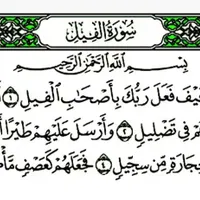 سُورَةُ الفِيلِ
بِسْمِ اللَّهِ الرَّحْمَٰنِ الرَّحِيمِ
كَيْفَ فَعَلَ رَبُّكَ بِأَصْحَابِ الْفِيلِ ١
هُمْ فِي تَضْلِيلٍ ٢ وَأَرْسَلَ عَلَيْهِمْ طَيْرًا
جَارَةٍ مِّن سِجِّيلٍ ٤ فَجَعَلَهُمْ كَعَصْفٍ مَّأْ